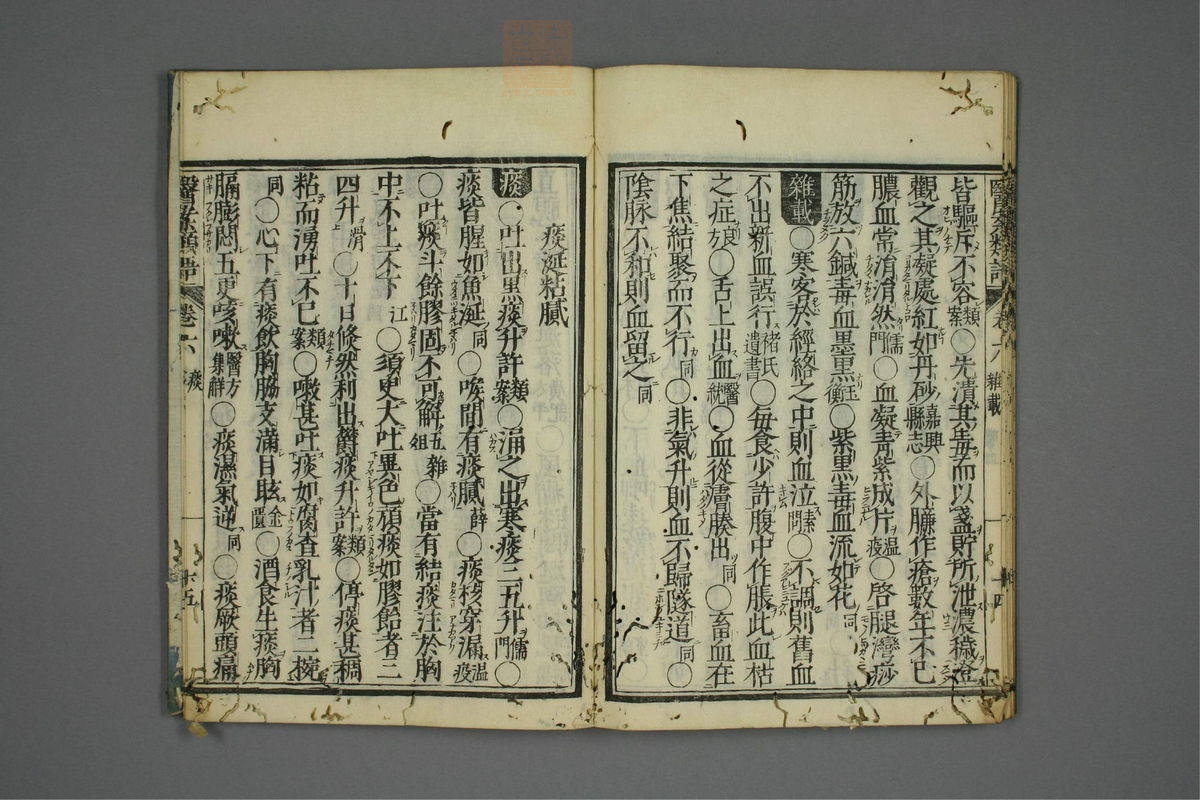 皆驅斥不容類案〇先漬其毒而以盞貯所泄濃穢澄
觀之其凝處紅如丹砂嘉興縣志〇外臁作瘡數年不已
膿血常涓涓然儒門〇血凝青紫成片溫疫〇啓腿灣痧
筋放六鍼毒血墨黑玉衡〇紫黑毒血流如花同
雜載〇寒客於經絡之中則血泣素問〇不調則舊血
不出新血誤行褚氏遺書〇每食少許腹中作脹此血枯
之症良方〇舌上出血醫統〇血從膚腠出同〇畜血在
下焦結聚而不行同〇非氣升則血不歸隧道同〇
陰脉不和則血留之同
醫案類語 卷六 雜載 十四
痰涎粘膩
痰〇吐出黑痰升許類案〇涌之出寒痰三五升儒門〇
痰皆腥如魚涎同〇喉間有痰膩薛〇痰核穿漏溫疫
〇吐痰斗餘膠固不可解雜俎〇當有結痰注於胸
中不上不下江〇須臾大吐異色頑痰如膠飴者三
四升滑〇十日倏然利出欝痰升許類案〇停痰甚稠
粘而湧吐不已類案〇嗽甚吐痰如腐查乳汁者二椀
同〇心下有痰飲胸脇支滿目眩金匱〇酒食生痰胸
膈膨悶五更咳嗽醫方集解〇痰濕氣逆同〇痰厥頭痛
醫案類語 卷六 痰 十五